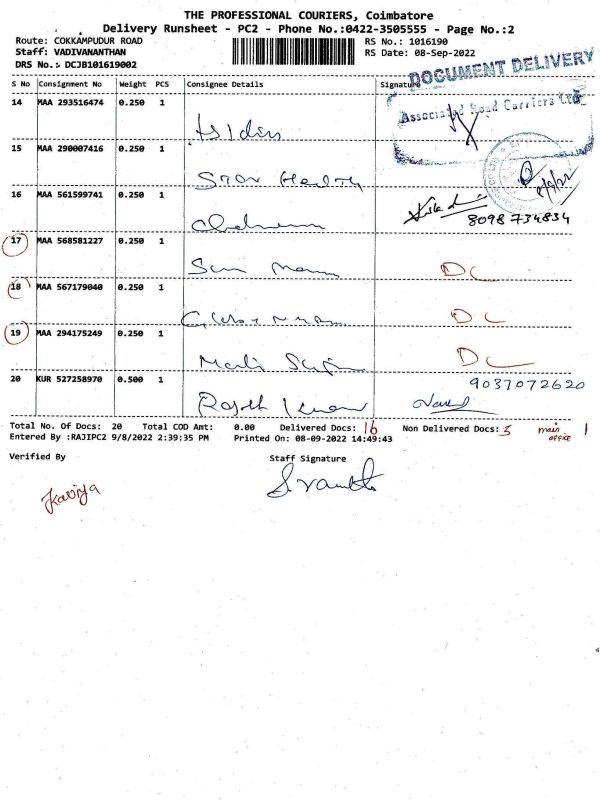 THE PROFESSIONAL COURIERS, Coimbatore
Delivery Runsheet - PC2 - Phone No.:0422-3505555 - Page No.:2
Route: COKKAMPUDUR ROAD RS No.: 1016190
Staff: VADIVANANTHAN RS Date: 08-Sep-2022
DRS No.: DCJB101619002
DOCUMENT DELIVERY
S No Consignment No Weight PCS Consignee Details Signature
Associated Road Carriers Ltd
14 MAA 293516474 0.250 1
15 MAA 290007416 0.250 1
Star Health
8/9/22
16 MAA 561599741 0.250 1
8098 734834
17 MAA 568581227 0.250 1
Sun DC
18 MAA 567179040 0.250 1
DC
19 MAA 294175249 0.250 1
DC
20 KUR 527258970 0.500 1
9037072620
Total No. Of Docs: 20 Total COD Amt: 0.00 Delivered Docs: 16 Non Delivered Docs: 3 main office 1
Entered By :RAJIPC2 9/8/2022 2:39:35 PM Printed On: 08-09-2022 14:49:43
Verified By Staff Signature
Kaviya